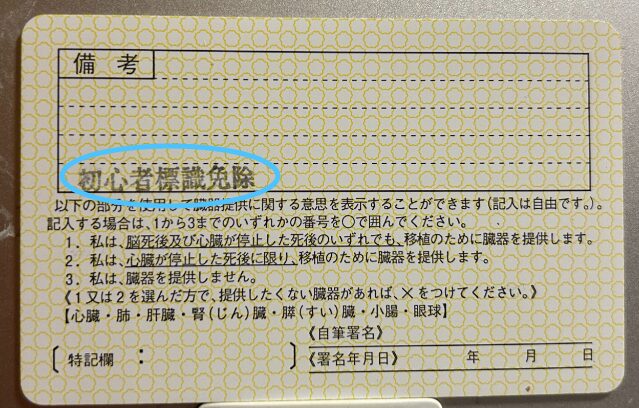 備考
初心者標識免除
以下の部分を使用して臓器提供に関する意思を表示することができます(記入は自由です。)。
記入する場合は、1から3までのいずれかの番号を〇で囲んでください。
1. 私は、脳死後及び心臓が停止した死後のいずれでも、移植のために臓器を提供します。
2. 私は、心臓が停止した死後に限り、移植のために臓器を提供します。
3. 私は、臓器を提供しません。
《1又は2を選んだ方で、提供したくない臓器があれば、×をつけてください。》
【心臓・肺・肝臓・腎(じん)臓・膵(すい)臓・小腸・眼球】
〔特記欄:〕
《自筆署名》
《署名年月日》 年 月 日